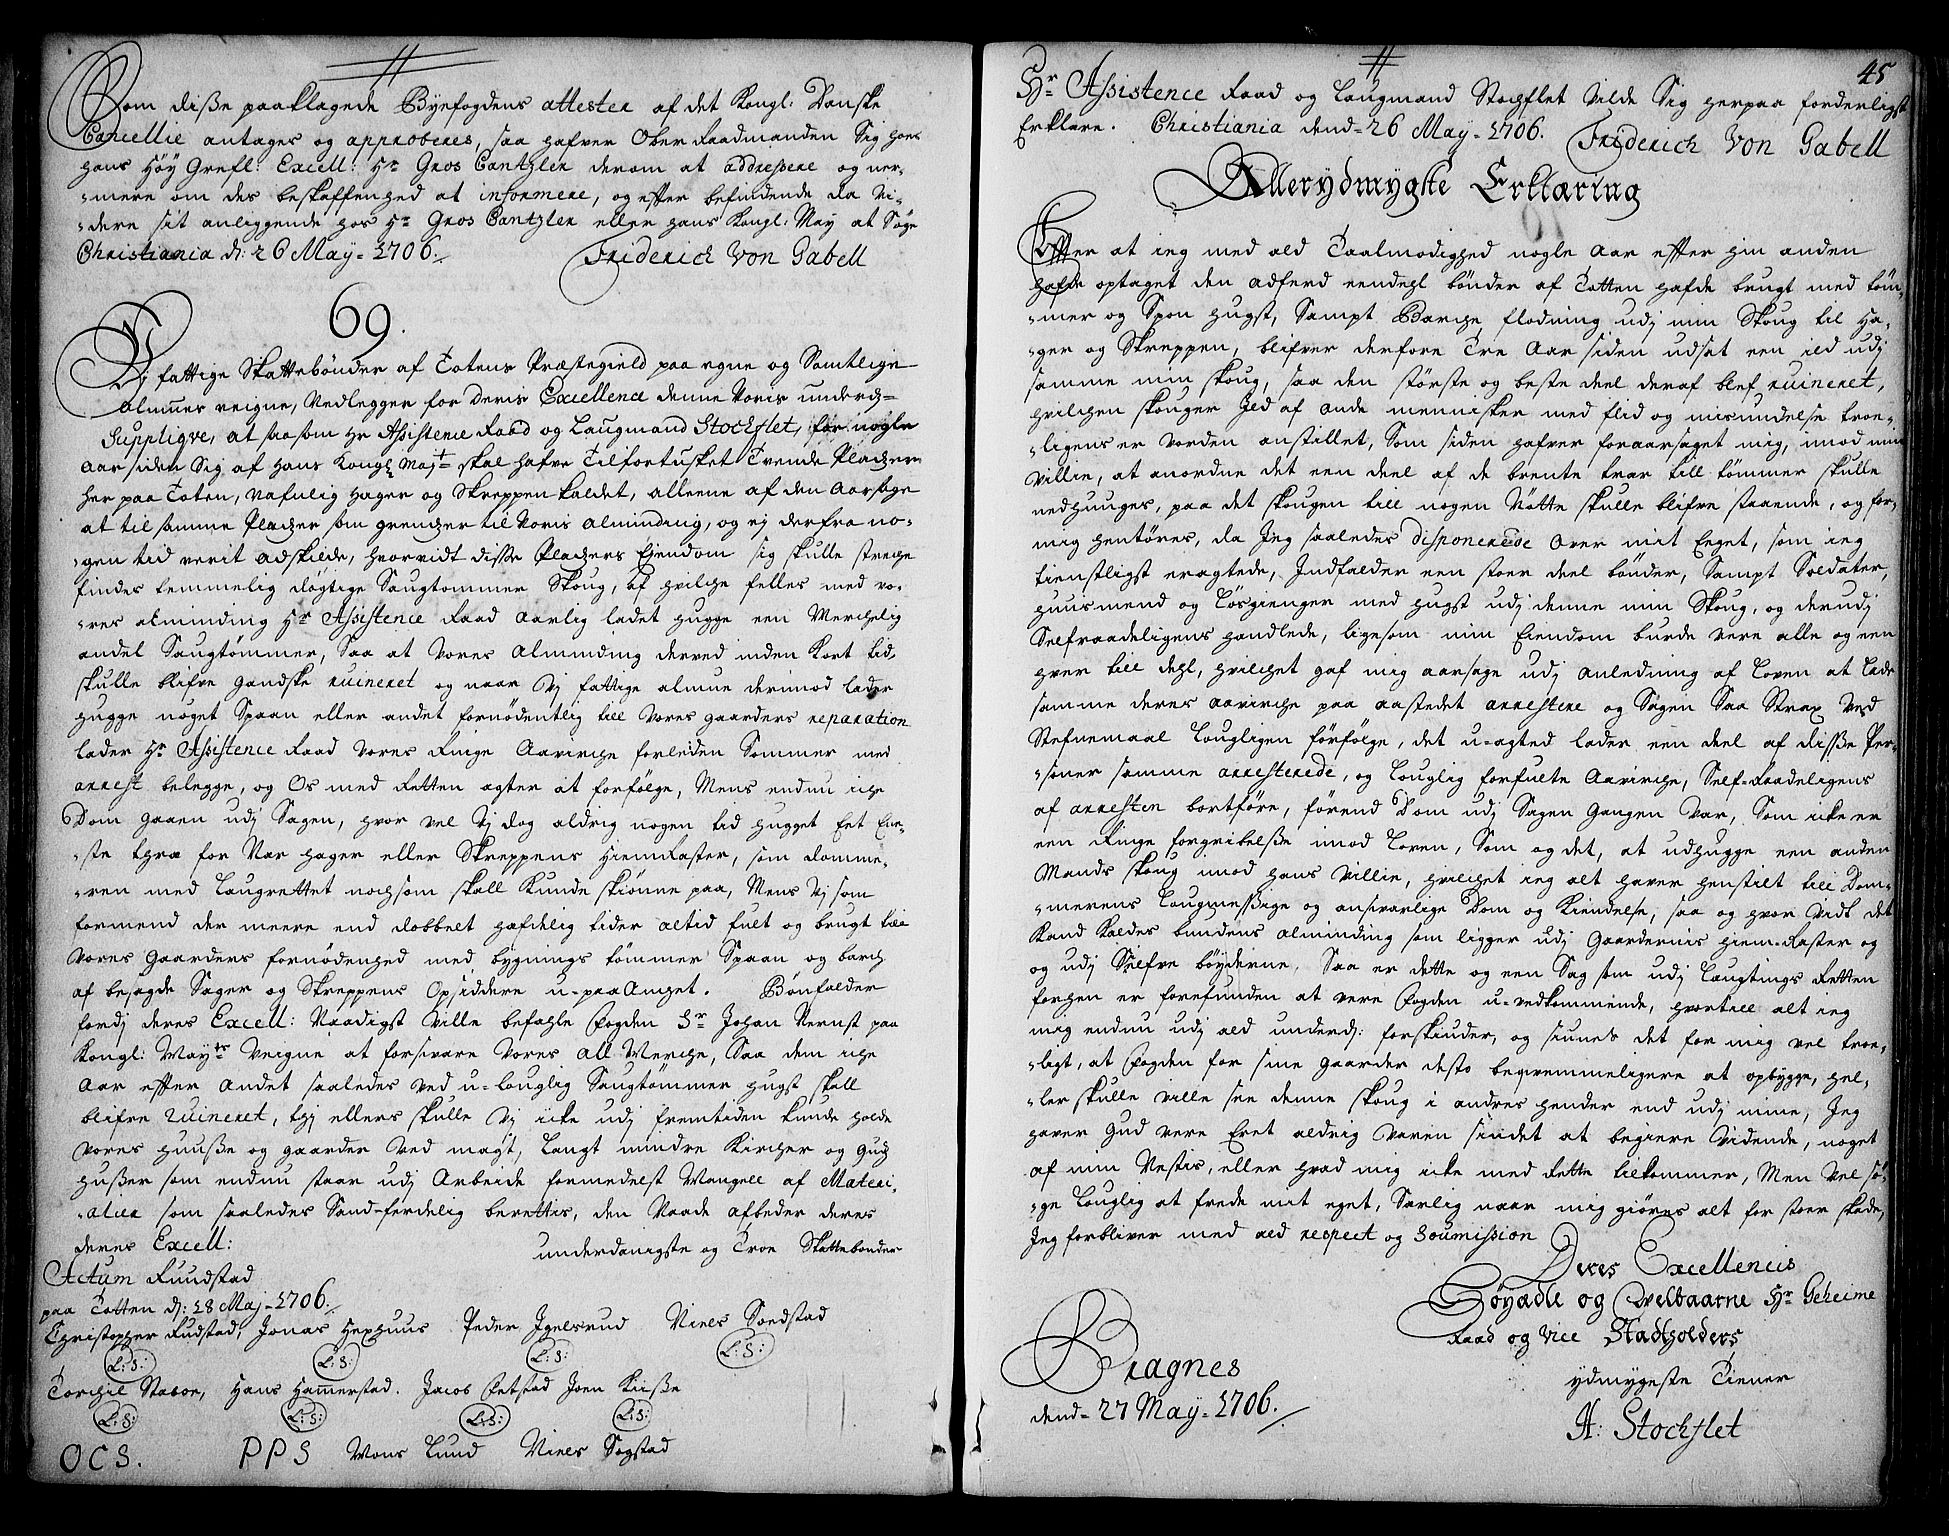 Som disse paaklagede Byefogdens attester af det Kongl: Danske
Cancellie antages og approberes, saa hafver Ober Raadmanden Sig hoes
hans Høy Grefl: Excell: Hr Gros Cantzler derom at addressere og ner-
-mere om des beskaffenhed at informere, og efter befindende da vi-
-dere sit anliggende hos Hr Gros Cantzler eller hans Kongl: May at Søge
Christiania d: 26 May-1706. Friderich Von Gabell
69.
Vj fattige Skattebønder af Totens Præstegield paa egne og Samtlige
almues veigne, Nedlegger for deris Excellence denne voris underd-
Supplique, at saasom Hr Assistence Raad og Laugmand Stochflet, for nogle
Aar siden Sig af Hans Kongl Mayt skal hafve Tilfortusket Tvende Placher
her paa Toten, nafnlig Hager og Skreppen kaldet, alleene af den Aarsage
at til samme Placher som grendser til voris alminding, og ej derfra no-
-gen tid verit adskilde, hvorvidt disse Plachers Eiendom sig skulle streche
findes temmelig døgtige Saugtømmer Skoug, af hvilche felles med vo-
-res alminding Hr Assistence Raad Aarlig ladet hugge een Merchelig
andel Saugtømmer, Saa at vores Alminding derved inden Kort tid
skulle blifve gandske ruineret og naar Vj fattige almue derimod lader
hugge noget Spaan eller andet fornødentlig till vores gaarders reparation
lader Hr Assistence Raad vores Ringe Aavirche forleden Sommer med
arrest belegge, og Os med Retten agter at forfølge, Mens endnu iche
Dom gaaen udj Sagen, hvor vel Vj dog aldrig nogen tid hugget Eet Ene-
-ste thræ for Nær Hager eller Skreppens Hiemraster, som domme-
-ren med Laugrettet nochsom skall kunde skiønne paa, Mens Vj som
formend der meere end dobbelt hafdelig tider altid fult og brugt till
vores Gaarders fornødenhed med bygnings tømmer Spaan og barch
af besagde Hager og Skreppens Opsiddere u-paaAnchet. Bønfalder
fordj deres Excell: Naadigst Ville befahle Fogden Sr Johan Wernst paa
Kongl: Mayts Veigne at forsvare vores All-Merche, Saa dem iche
Aar efter Andet saaledes ved u-louglig Saugtømmer hugst skall
blifve ruineret, thj ellers skulle Vj icke udj fremtiden kunde holde
vores huusse og gaarder ved magt, Langt mindre Kircher og Guds
husser som endnu staar udj Arbeide formedelst Mangell af Materi-
-alier som saaledes Sand-ferdelig berettis, den Naade afbeder deres
deres Excell: underdanigste og Troe Skattebonder
Actum Ruudstad
paa Totten d: 18 Maj-1706.
Christopher Rudstad, Jonas Hexhuus Peder Igelsrud Niels Soedstad
L:S: L:S: L:S: L:S:
Torchil Stabor, Hans Hamerstad. Jacob Fetstad Joen Kiisse
L:S: L:S: L:S: L:S:
OCS. PPS Mons Lund Niels Sogstad
45
Hr Assistence Raad og Laugmand Stochflet Vilde Sig herpaa forderligst
Erklære. Christiania dend-26 May-1706. Friderich Von Gabell
Allerydmygste Erklæring
Efter at ieg med ald Taalmodighed nogle Aar efter hin anden
hafde optaget den adferd eendehl bønder af Totten hafde brugt med töm-
-mer og Spon hugst, Sampt Barche flodning udj min Skoug til Ha-
-ger og Skreppen, blifver derfore Tre Aar siden udsat een ild udj
samme min skoug, saa den største og beste deel deraf blef ruineret,
hvilchen skouger Ild af onde mennisker med flid og misundelse troe-
-ligens er vorden anstillet, Som siden hafver foraarsaget mig, imod min
Villie, at anordne det een deel af de brente trær till tømmer skulle
nedhugges, paa det skougen till nogen Nötte skulle blifve staaende, og for
mig hentöres, da Jeg saaledes disponerede over mit Eeget, som ieg
tienstligst eragtede, Indfalder een stoer deel bönder, Sampt Soldater,
huusmend og Lösgienger med hugst udj denne min Skoug, og derudj
Selfraadeligens handlede, ligesom min Eiendom burde vere alle og een
hver till dehl, hvilchet gaf mig aarsage udj anledning af Loven at lade
samme deres aavirche paa aastedet arrestere og Sagen Saa Strax ved
Stefnemaal Lougligen förfölge, det u-agted lader een deel af disse Per-
-soner samme arresterede, og louglig forfulte Aavirche, Self-Raadeligens
af arresten bortföre, förend Dom udj Sagen Gangen Var, Som icke er
een Ringe forgribelsse imod Loven, Som og det, at udhugge een anden
Mands skoug imod hans Villie, hvilchet ieg alt haver henstilt till Dom-
-merens Lougmessige og ansvarlige Dom og Kiendelse, saa og hvor vidt det
Kand Kaldes bundens alminding som ligger udj Gaardernis hiem-Raster og
og udj Selfve böyderne, Saa er dette og een Sag som udj Laugtings Retten
forhen er forefunden at vere Fogden u-vedkommende, hvortill alt ieg
mig endnu udj ald underd: forskiuder, og siunes det for mig vel troe-
-ligt, at Fogden for sine gaarder desto beqvemmeligere at opbygge, hel-
-ler skulle ville see denne skoug i andres hender end udj mine, Jeg
haver Gud vere Æret aldrig varen sindet at begiere vidende, noget
af min Nestis, eller hvad mig icke med Rette tilkommer, Men vel sö-
-ge Louglig at frede mit eget, Særlig naar mig giöres alt for stoer skade,
Jeg forbliver med ald respect og Soumission
Deres Excellencis
Höyædle og Velbaarne Hr Geheime
Raad og Vice Stadtholders
ydmygste Tiener
H: Stochflet
Bragnes
dend-27 May-1706.